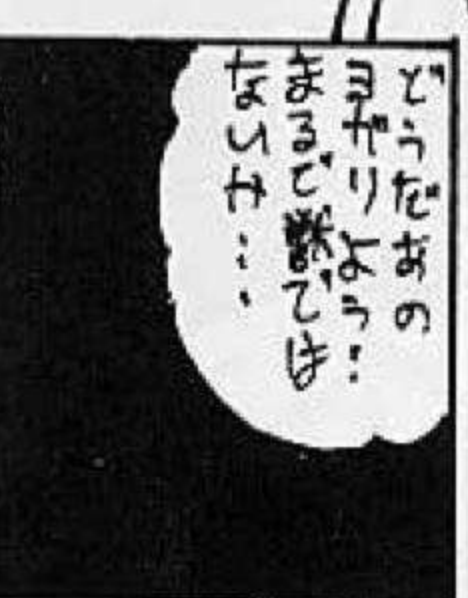 どうだあの
ヨガりよう…
まるで獣では
ないか…